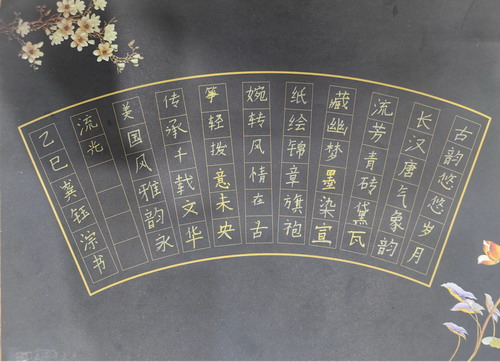 古韵悠悠岁月
长汉唐气象韵
流芳青砖黛瓦
藏幽梦墨染宣
纸绘锦章旗袍
婉转风情在古
筝轻拨意未央
传承千载文华
美国风雅韵永
流光
乙巳钰淙书